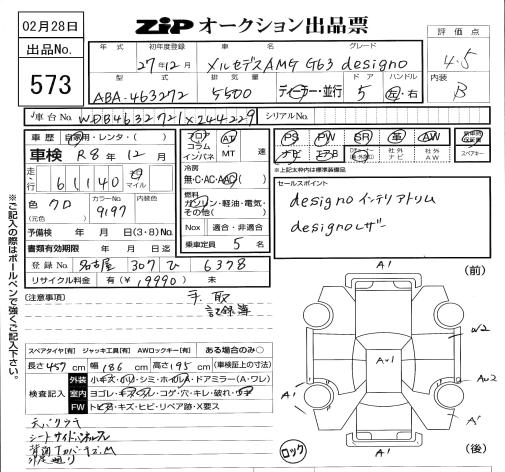 02月28日
出品No.
573
ZIP オークション出品票
評価点
4.5
内装
B
年式 初年度登録 車名 グレード
27年12月 メルセデスAMG G63 designo
型式 排気量 ドア ハンドル
ABA-463272 5500 ディーラー・並行 5 左・右
車台No. WDB4632721X244229 シリアルNo.
車歴 自家用・レンタ・( )
車検 R8年12月
走行 61140 キロ マイル
色 クロ (元色) カラーNo. 9197 内装色
予備検 年 月 日 (3・8) No.
書類有効期限 年 月 日迄
登録No. 名古屋 307 ひ 6378
リサイクル料金 有(¥19990)未
フロア コラム インパネ AT MT 速
冷房
無・C・AC・AAC
燃料
ガソリン・軽油・電気・その他( )
Nox 適合・非適合
乗車定員 5 名
PS PW SR 革 AW
ナビ エアB 社外ナビ 社外AW スペアキー
*上記太枠内は標準装備品
セールスポイント
designo インテリアトリム
designoレザー
※ご記入の際はボールペンで強くご記入下さい。
(注意事項)
手、取
記録簿
スペアタイヤ[有] ジャッキ工具[有] AWロックキー[有] ある場合のみ○
長さ 457 cm 幅 186 cm 高さ 195 cm (車検証上の寸法)
検査記入
外装 小キズ・ハリ・シミ・ホイルA・ドアミラー(A・ワレ)
室内 ヨゴレ・キズ・スレ・コゲ・穴・キレ・破れ・ウキ
FW トビA・キズ・ヒビ・リペア跡・X要ス
天バリウキ
ロック
(前)
(後)
A1
W2
AW1
AW2
A1
A1
A1